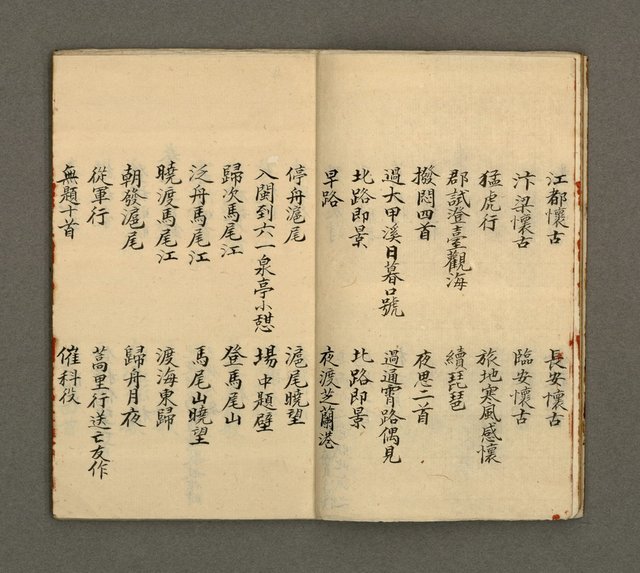 江都懷古 長安懷古
汴梁懷古 臨安懷古
猛虎行 旅地寒風感懷
郡試澄臺觀海 續琵琶
撥悶四首 夜思二首
過大甲溪日暮口號 過通霄路偶見
北路即景 北路即景
早路 夜渡芝蘭港
停舟滬尾 滬尾曉望
入閩到六一泉亭小憇 場中題壁
歸次馬尾江 登馬尾山
泛舟馬尾江 馬尾山曉望
曉渡馬尾江 渡海東歸
朝發滬尾 歸舟月夜
從軍行 蒿里行送亡友作
無題十首 催科役